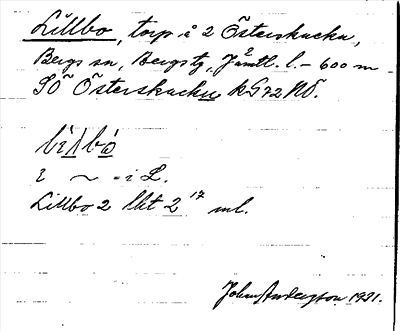 Lillbo, torp i 2 Österskucku,
Bergs sn, Bergs tg, Jämtl. l. – 600 m
SÖ Österskucku kG72NÖ.
i ~ = i L.
Lillbo 2 lkt 2 17 ml.
John Andersson 1931.